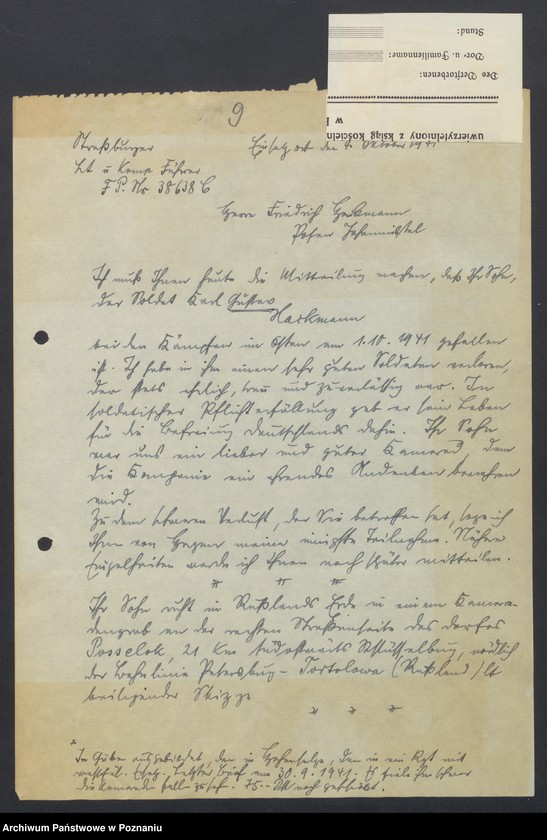 Stand:
Vor- u. Familienname:
Des Verstorbenen:
w
uwierzytelniony z ksiąg kościeln
9
Straßburger
Einsatzort den 9. Oktober 1941
Lt u Komp Führer
F.P. Nr 38638 C
Herrn Friedrich Harkmann
Posen
Ich muß Ihnen heute die Mitteilung machen, daß Ihr Sohn,
der Soldat Karl Gustav
Harkmann
bei den Kämpfen im Osten am 1.10.1941 gefallen
ist. Ich habe in ihm einen sehr guten Soldaten verloren,
der stets ehrlich, treu und zuverlässig war. In
soldatischer Pflichterfüllung gab er sein Leben
für die Befreiung Deutschlands dahin. Ihr Sohn
war uns ein lieber und guter Kamerad, dem
die Kompanie ein ehrendes Andenken bewahren
wird.
Zu dem schweren Verlust, der Sie betroffen hat, sage ich
Ihnen von Herzen meine innigste Teilnahme. Nähere
Einzelheiten werde ich Ihnen noch später mitteilen.
* * *
Ihr Sohn ruht in Rußlands Erde in einem Kamera-
dengrab an der rechten Straßenseite des Dorfes
Posselok, 21 Km südostwärts Schlüsselburg, nördlich
der Bahnlinie Petersburg – Tortolowa (Rußland) lt
beiliegender Skizze
* * *
*
In ausgebildet, dann in dann in ein Rgt mit
Letzter Brief am 30.9.1941. Es
die Kameraden 75.– RM
Archiwum Państwowe w Poznaniu